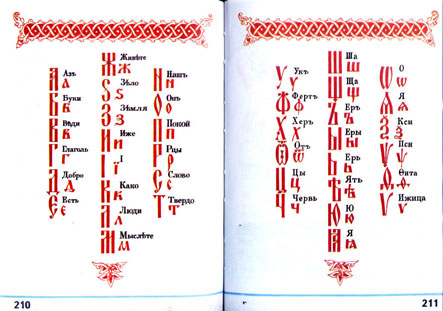 Азъ
А а
Буки
Б б
Вѣди
В в
Глаголь
Г г
Добро
Д д
Есть
Є є
Живѣте
Ж ж
Ѕѣло
Ѕ ѕ
Земля
З з
Иже
И и
І
Ї ї
Како
К к
Люди
Л л
Мыслѣте
М м
Нашъ
Н н
Онъ
О о
Покой
П п
Рцы
Р р
Слово
С с
Твердо
Т т
210
Укъ
У у
Фертъ
Ф ф
Херъ
Х х
Отъ
Ѿ ѿ
Цы
Ц ц
Червь
Ч ч
Ша
Ш ш
Ща
Щ щ
Еръ
Ъ ъ
Еры
Ы ы
Ерь
Ь ь
Ять
Ѣ ѣ
Ю
Ю ю
Я
Ꙗ ꙗ
О
Ѡ ѡ
Я
Ѧ ѧ
Кси
Ѯ ѯ
Пси
Ѱ ѱ
Ѳита
Ѳ ѳ
Ижица
Ѵ ѵ
211